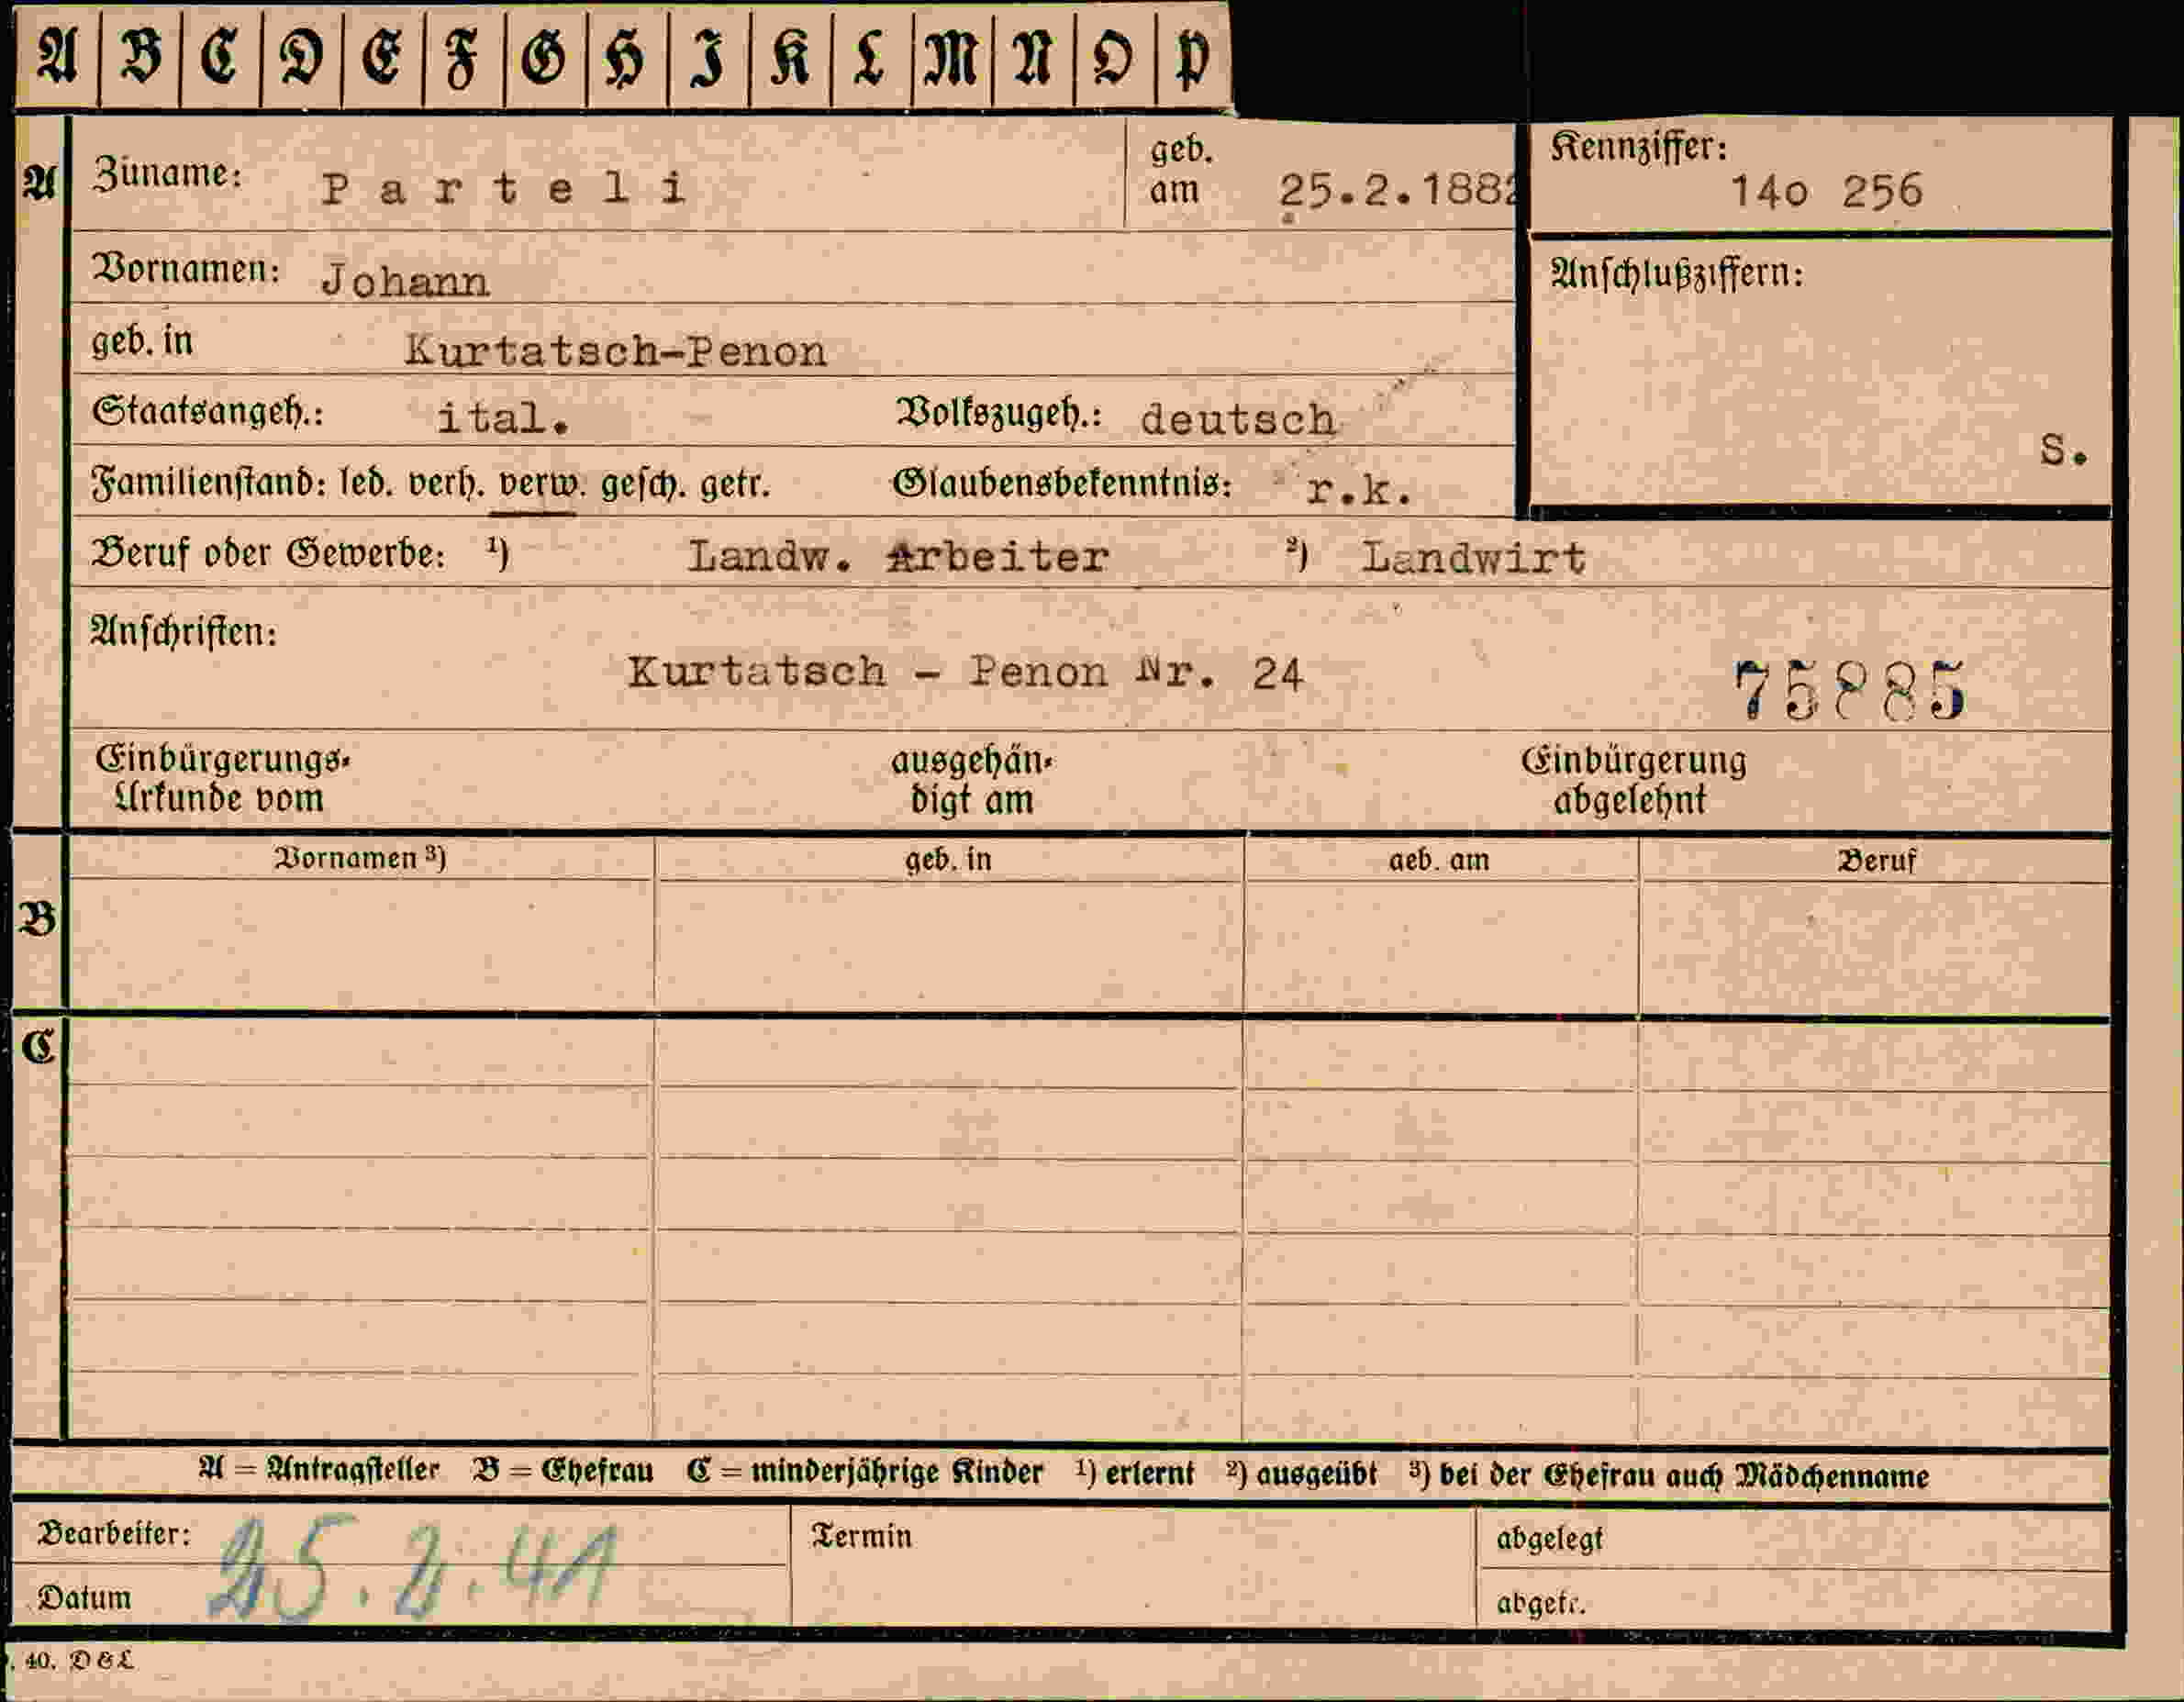 A B C D E F G H I K L M N O P
A Zuname: Parteli geb. am 25.2.1882 Kennziffer: 14o 256
Vornamen: Johann Anschlußziffern:
geb. in Kurtatsch-Penon
Staatsangeh.: ital. Volkszugeh.: deutsch S.
Familienstand: led. verh. verw. gesch. getr. Glaubensbekenntnis: r.k.
Beruf oder Gewerbe: ¹) Landw. Arbeiter ²) Landwirt
Anschriften:
Kurtatsch - Penon Nr. 24 75885
Einbürgerungs- ausgehän- Einbürgerung
Urkunde vom digt am abgelehnt
Vornamen ³) geb. in geb. am Beruf
B
C
A = Antragsteller B = Ehefrau C = minderjährige Kinder ¹) erlernt ²) ausgeübt ³) bei der Ehefrau auch Mädchenname
Bearbeiter: 25.2.41 Termin abgelegt
Datum abgetr.
. 40. D & L